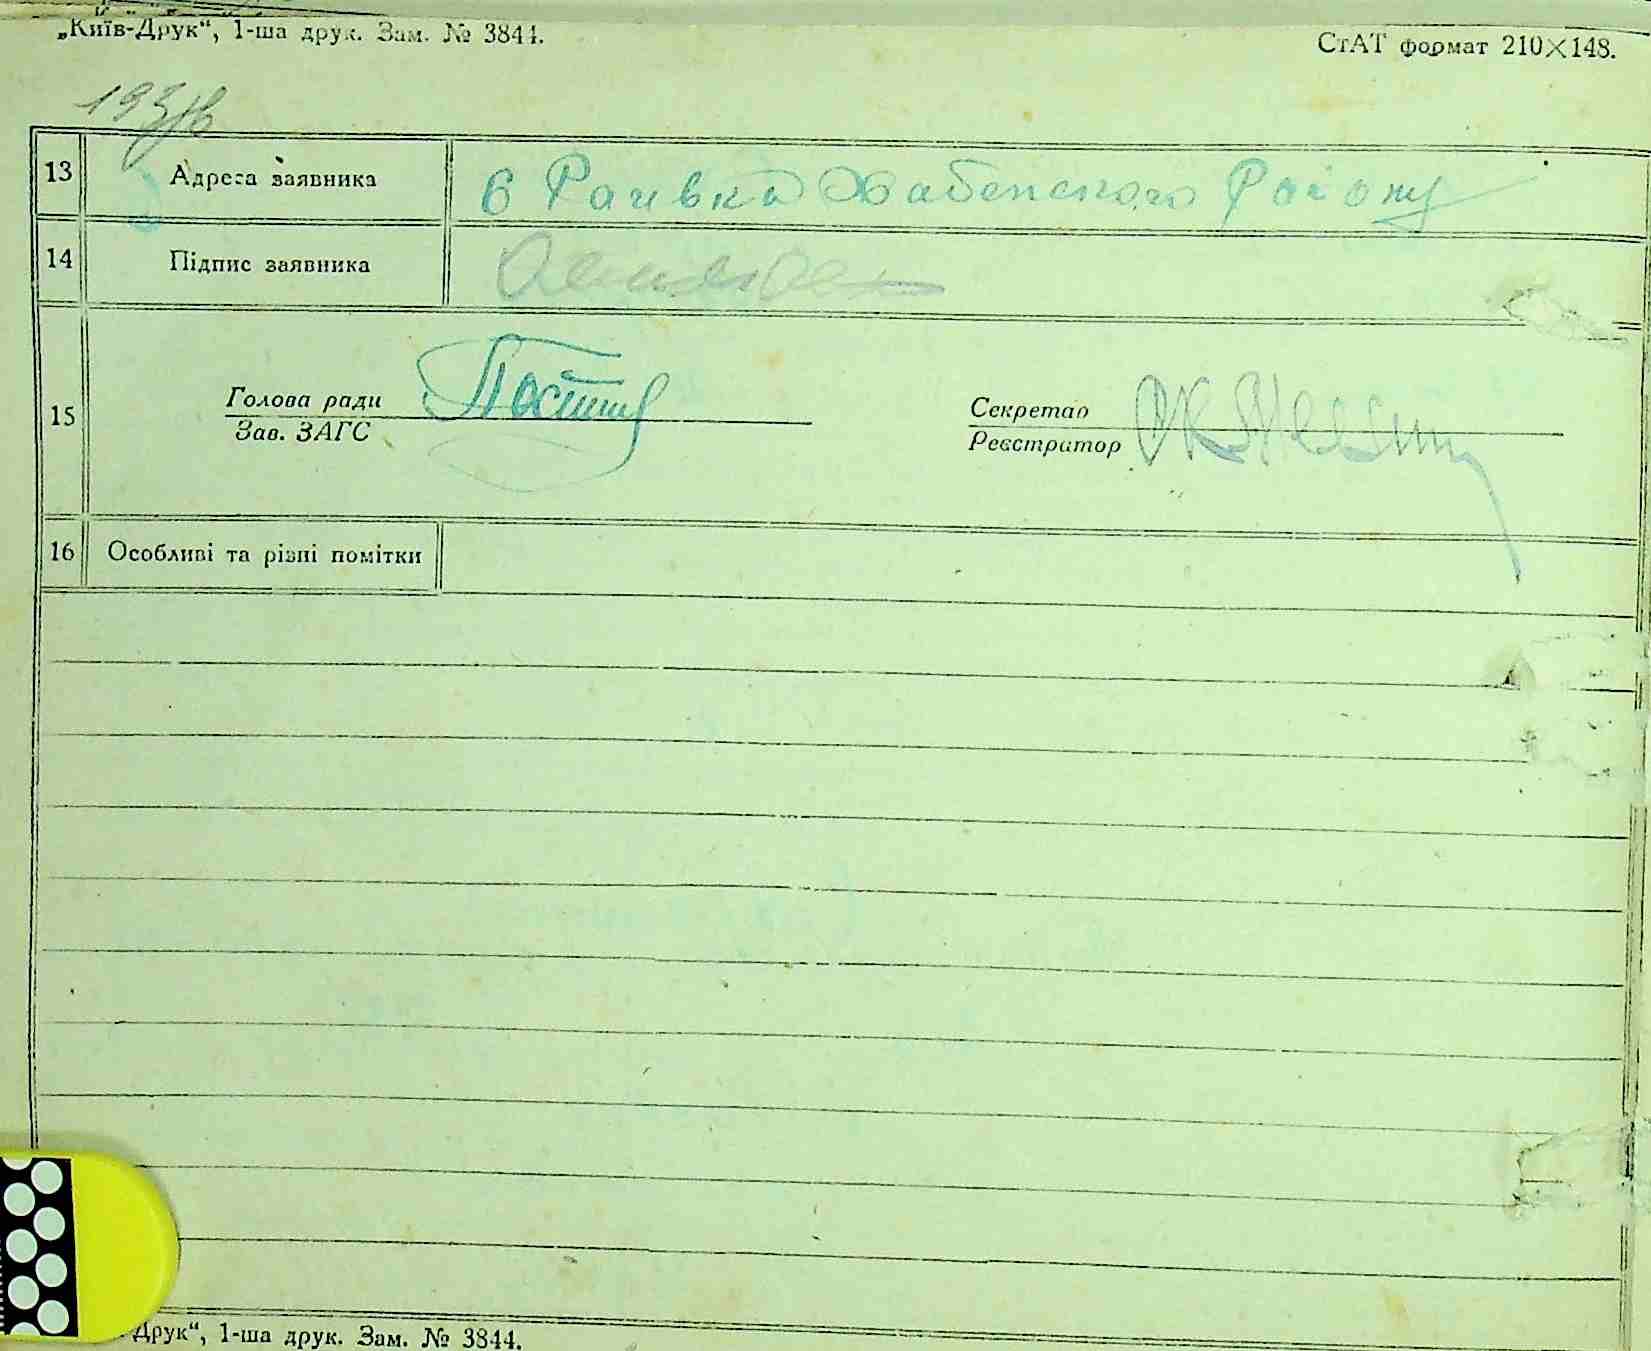 „Київ-Друк“, 1-ша друк. Зам. № 3844.
СтАТ формат 210×148.
13 Адреса заявника в Рагивка Хабенского Району
14 Підпис заявника
15 Голова ради
Зав. ЗАГС
Секретар
Реєстратор
16 Особливі та різні помітки
-Друк“, 1-ша друк. Зам. № 3844.